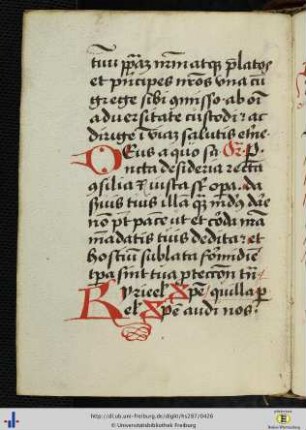 tuu ppaz nrm atq platos
et principes nros una cu
grege sibi omisso ab oi
adversitate custodi et ac
dirige i via salutis etne
Deus a quo sa Or p
ncta desideria recta
silia et iusta st opa da
suis tuis illa q mudus dare
no pt pace ut et corda nra
madatis tuis dedita et
hostiu sublata formidie
tpa sint tua ptectone
Kyrieel Xpe
el Xpe audi nos
http://dl.ub.uni-freiburg.de/diglit/hs287/0426
© Universitätsbibliothek Freiburg